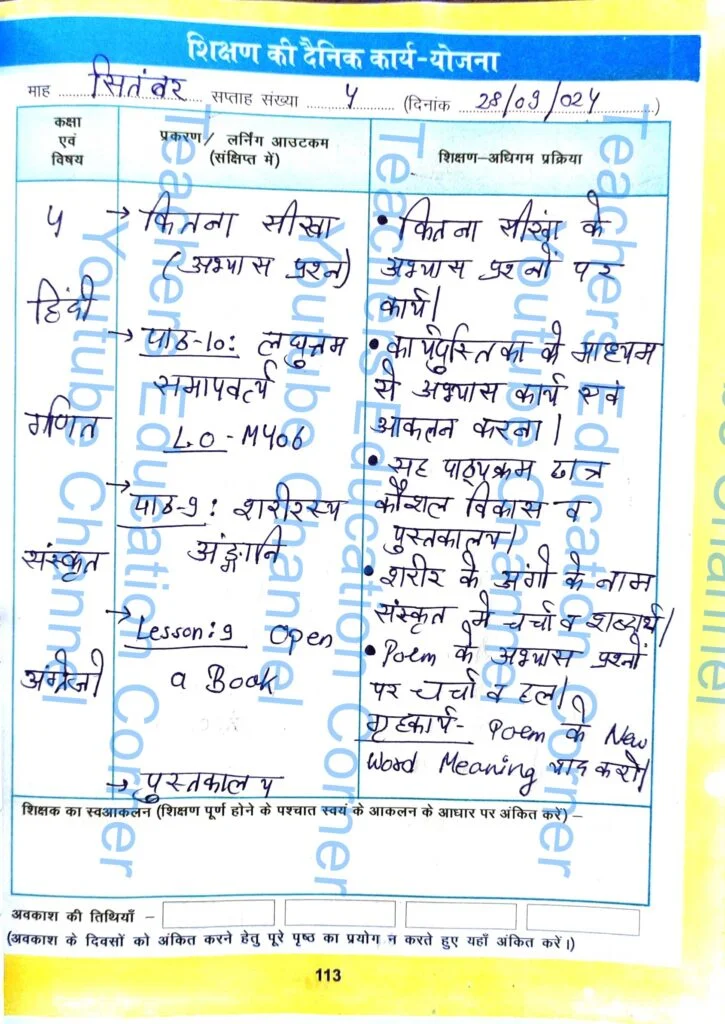 शिक्षण की दैनिक कार्य-योजना
माह सितंबर सप्ताह संख्या ५ (दिनांक 28/09/024)
कक्षा एवं विषय
प्रकरण/ लर्निंग आउटकम (संक्षिप्त में)
शिक्षण-अधिगम प्रक्रिया
५
हिंदी
गणित
संस्कृत
अंग्रेजी
→ कितना सीखा
(अभ्यास प्रश्न)
→ पाठ-10: लघुत्तम
समापवर्त्य
L.O - M506
→ पाठ-9: शरीरस्य
अंङ्गानि
→ Lesson: 9 Open
a Book
→ पुस्तकालय
• कितना सीखा के
अभ्यास प्रश्नों पर
कार्य।
• कार्यपुस्तिका के माध्यम
से अभ्यास कार्य एवं
आकलन करना।
• सह पाठ्यक्रम छात्र
कौशल विकास व
पुस्तकालय।
• शरीर के अंगो के नाम
संस्कृत मे चर्चा व शब्दार्थ।
• Poem के अभ्यास प्रश्नों
पर चर्चा व हल।
गृहकार्य- Poem के New
Word Meaning याद करो।
शिक्षक का स्वआकलन (शिक्षण पूर्ण होने के पश्चात स्वयं के आकलन के आधार पर अंकित करें) –
अवकाश की तिथियाँ –
(अवकाश के दिवसों को अंकित करने हेतु पूरे पृष्ठ का प्रयोग न करते हुए यहाँ अंकित करें।)
113
Teachers Education Corner
Youtube Channel
Teachers Education Corner
Youtube Channel
Teachers Education Corner
Youtube Channel